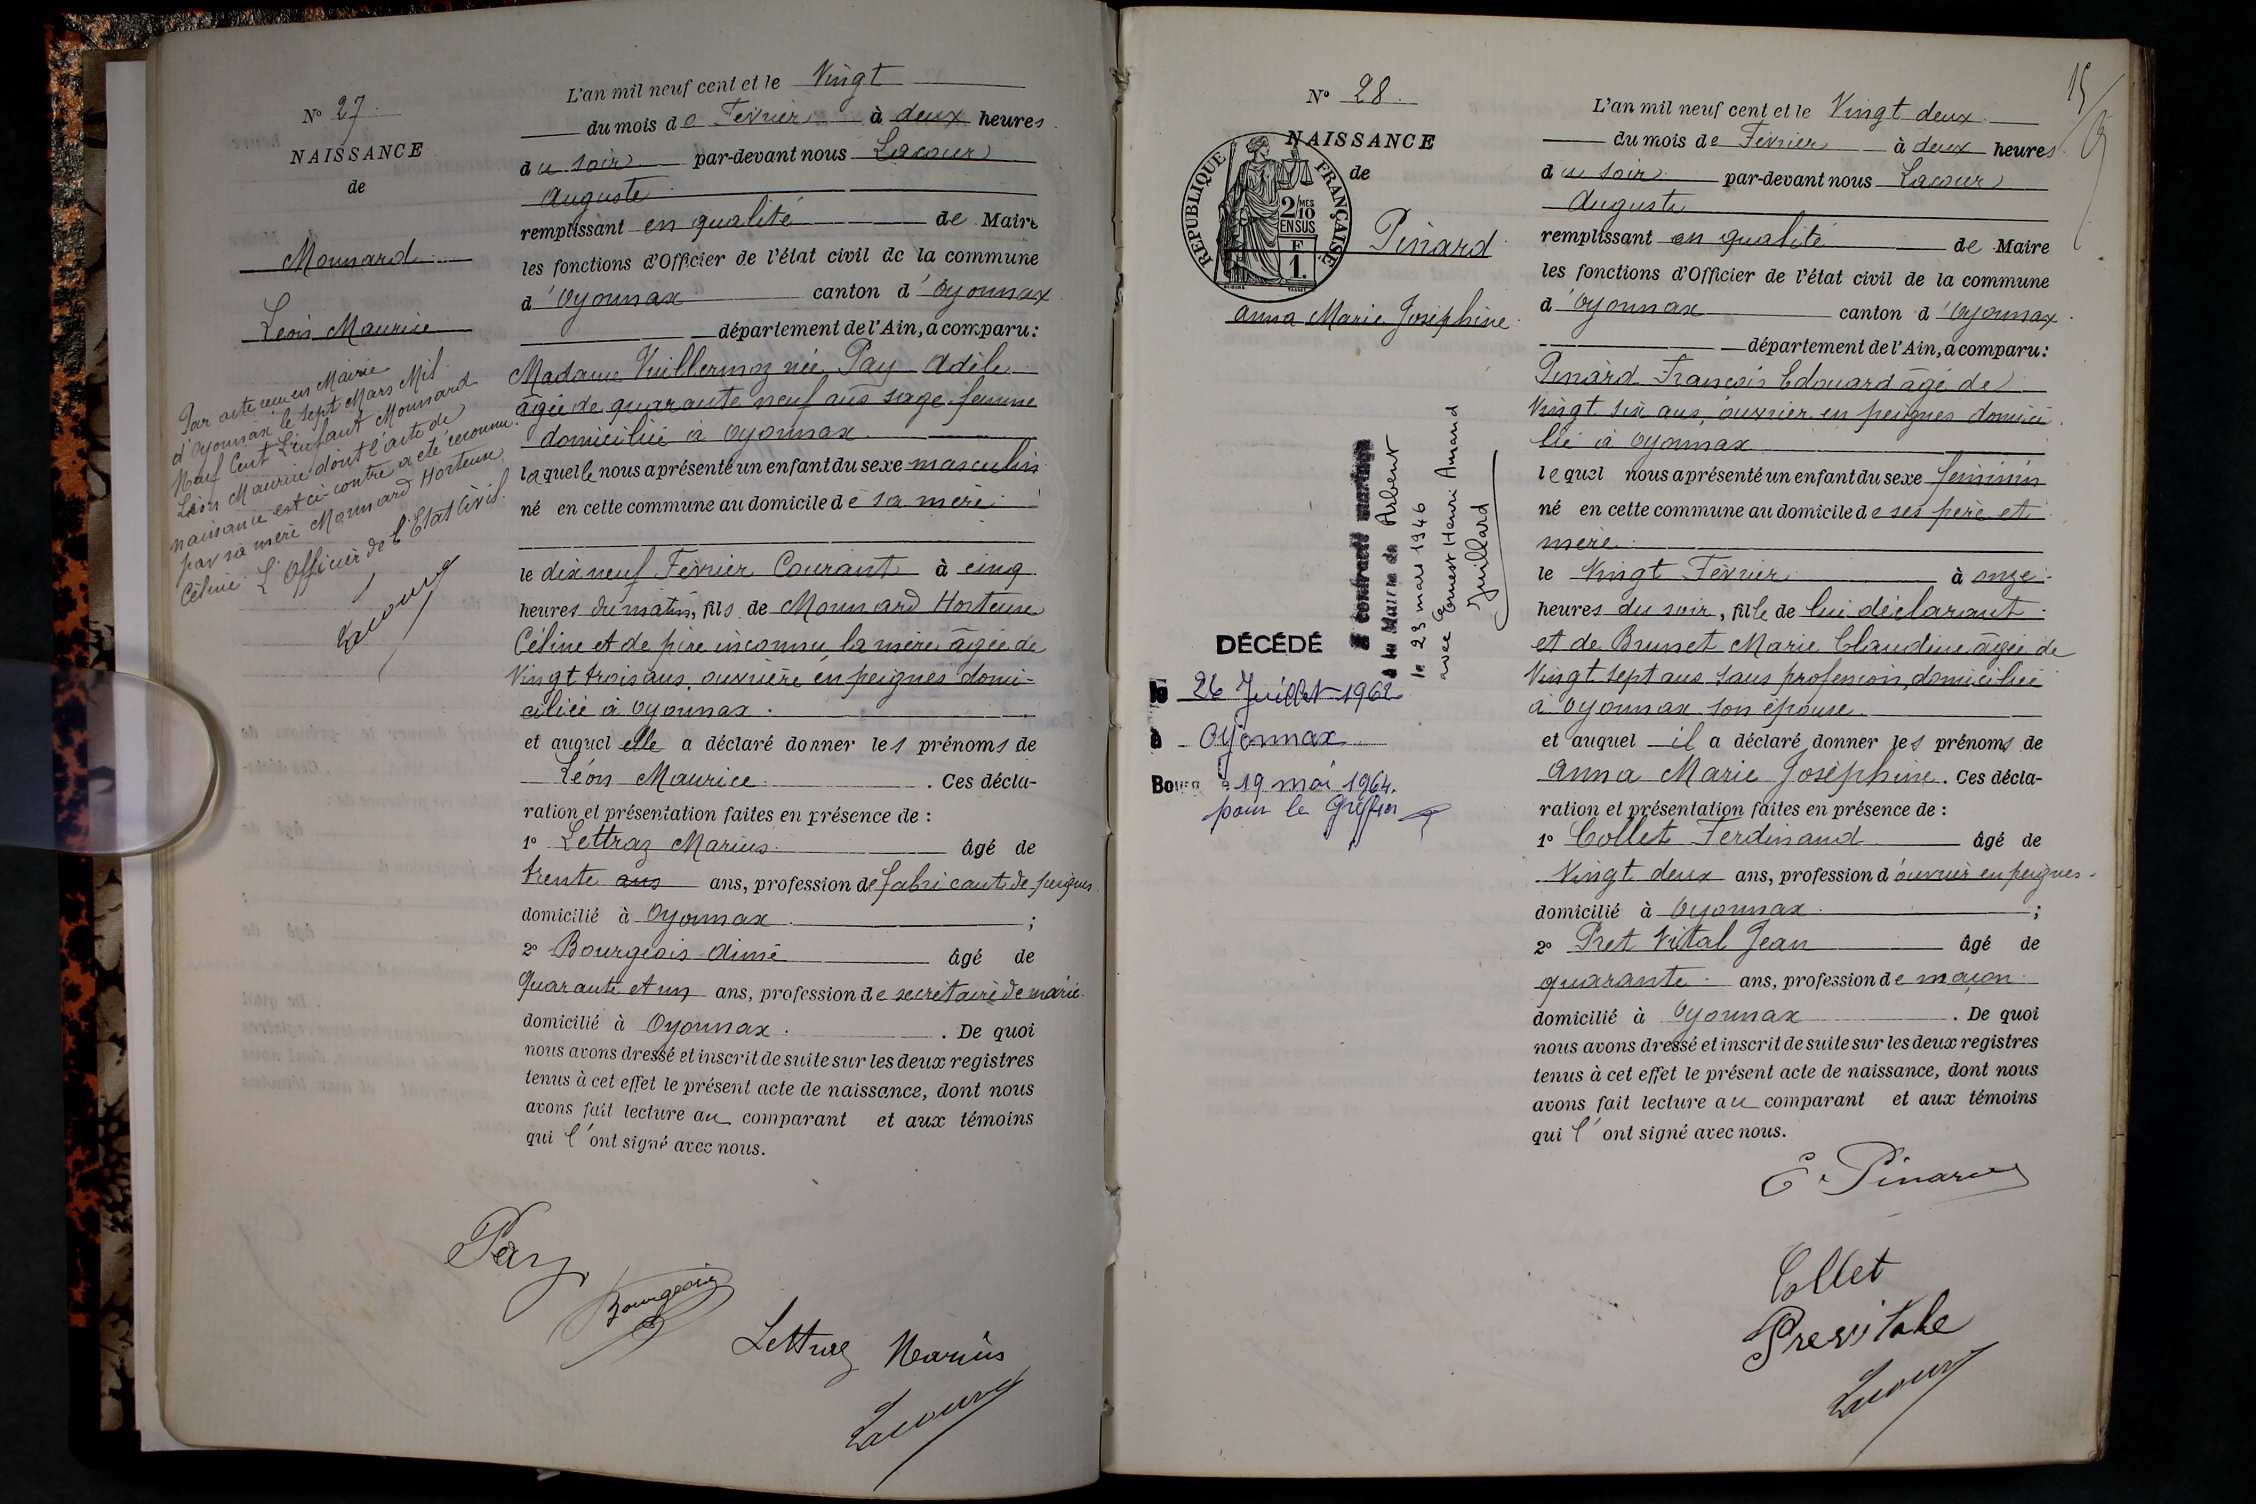 N° 27
NAISSANCE
de
Monnard
Léon Maurice
Par acte reçu en Mairie
d'Oyonnax le sept Mars Mil
Neuf Cent L'enfant Monnard
Léon Maurice dont l'acte de
naissance est ci-contre a été reconnu
par sa mère Monnard Hortense
Céline. L'Officier de l'Etat Civil.
Lacour
L'an mil neuf cent et le Vingt
du mois de Février à deux heures
du soir par-devant nous Lacour
Auguste
remplissant en qualité de Maire
les fonctions d'Officier de l'état civil de la commune
d'Oyonnax canton d'Oyonnax
département de l'Ain, a comparu:
Madame Vuillermoz née Pay Adèle
âgée de quarante neuf ans sage-femme
domiciliée à Oyonnax
laquelle nous a présenté un enfant du sexe masculin
né en cette commune au domicile de sa mère
le dix neuf Février Courant à cinq
heures du matin, fils de Monnard Hortense
Céline et de père inconnu la mère âgée de
Vingt trois ans, ouvrière en peignes domi-
ciliée à Oyonnax.
et auquel elle a déclaré donner les prénoms de
Léon Maurice. Ces décla-
ration et présentation faites en présence de :
1° Lettraz Marius âgé de
trente ans ans, profession de fabricant de peignes
domicilié à Oyonnax ;
2° Bourgeois Aimé âgé de
Quarante et un ans, profession de secrétaire de mairie
domicilié à Oyonnax. De quoi
nous avons dressé et inscrit de suite sur les deux registres
tenus à cet effet le présent acte de naissance, dont nous
avons fait lecture au comparant et aux témoins
qui l'ont signé avec nous.
Pay
Bourgeois
Lettraz Marius
Lacour
15
N° 28
NAISSANCE
de
REPUBLIQUE FRANÇAISE
2/10 MES
EN SUS
F
1.
Pinard
Anna Marie Joséphine
A contracté mariage
à la Mairie de Arbent
le 23 mars 1946
avec Ernest Henri Armand
Juillard
DÉCÉDÉ
le 26 Juillet 1962
à Oyonnax
Bourg 19 mai 1964.
pour le Greffier
L'an mil neuf cent et le Vingt deux
du mois de Février à deux heures
du soir par-devant nous Lacour
Auguste
remplissant en qualité de Maire
les fonctions d'Officier de l'état civil de la commune
d'Oyonnax canton d'Oyonnax
département de l'Ain, a comparu:
Pinard François Edouard âgé de
Vingt six ans, ouvrier en peignes domici
lié à Oyonnax
lequel nous a présenté un enfant du sexe féminin
né en cette commune au domicile de ses père et
mère
le Vingt Février à onze
heures du soir, fille de lui déclarant
et de Brunet Marie Claudine âgée de
Vingt sept ans sans profession, domiciliée
à Oyonnax son épouse
et auquel il a déclaré donner les prénoms de
Anna Marie Joséphine. Ces décla-
ration et présentation faites en présence de :
1° Collet Ferdinand âgé de
Vingt deux ans, profession d'ouvrier en peignes
domicilié à Oyonnax ;
2° Pret Vital Jean âgé de
quarante ans, profession de maçon
domicilié à Oyonnax. De quoi
nous avons dressé et inscrit de suite sur les deux registres
tenus à cet effet le présent acte de naissance, dont nous
avons fait lecture au comparant et aux témoins
qui l'ont signé avec nous.
E. Pinard
Collet
Lacour